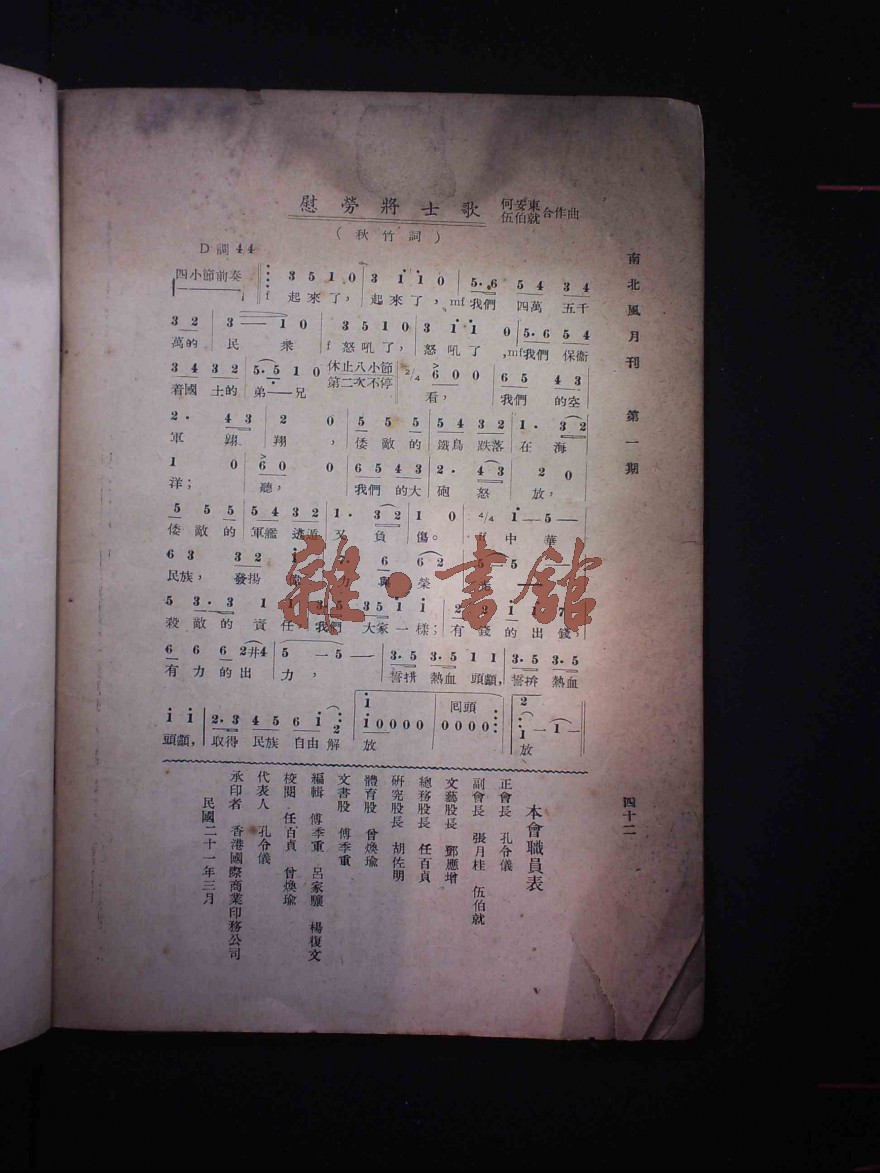 慰勞將士歌
何安東
伍伯就 合作曲
（秋竹詞）
D調 4 4
四小節前奏
3 5 1 0 3 i i 0 5. 6 5 4 3 4
f 起來了，起來了，mf 我們 四萬 五千
3 2 3 — 1 0 3 5 1 0 3 i i 0 5. 6 5 4
萬的 民 衆 f 怒吼了，怒吼了，mf我們 保衞
3 4 3 2 5. 5 1 0 休止八小節 第二次不停 2/4 6 0 0 6 5 4 3
着國土的弟—兄 看，我們的空
2. 4 3 2 0 5 5 5 5 4 3 2 1. 3 2
軍 翱 翔，倭敵的鐵鳥跌落在海
1 0 6 0 0 6 5 4 3 2. 4 3 2 0
洋；聽，我們的大砲怒放，
5 5 5 5 4 3 2 1. 3 2 1 0 4/4 i — 5 —
倭敵的軍艦逃遁又負傷。中華
6 3 3 2 i 7. 6 6 2 5 5 —
民族，發揚 力與榮
5 3. 3 1 1 3. 5 3 5 i i 2 2 i i 7
殺敵的責任，我們大家一樣；有錢的出錢，
6 6 6 2 #4 5 — 5 — 3. 5 3. 5 1 1 3. 5 3. 5
有力的出力，誓拚熱血頭顱，誓拚熱血
i i 2. 3 4 5 6 i 2 i 0 0 0 0 回頭 0 0 0 0 i — i —
頭顱，取得民族自由解放 放
南北風月刊 第一期
四十二
本會職員表
正會長 孔令儀
副會長 張月桂 伍伯就
文藝股長 鄧應增
總務股長 任百貞
硏究股長 胡佐朋
體育股 曾煥瑜
文書股 傅季重
編輯 傅季重 呂家驤 楊復文
校閱 任百貞 曾煥瑜
代表人 孔令儀
承印者 香港國際商業印務公司
民國二十一年三月
雜·書館